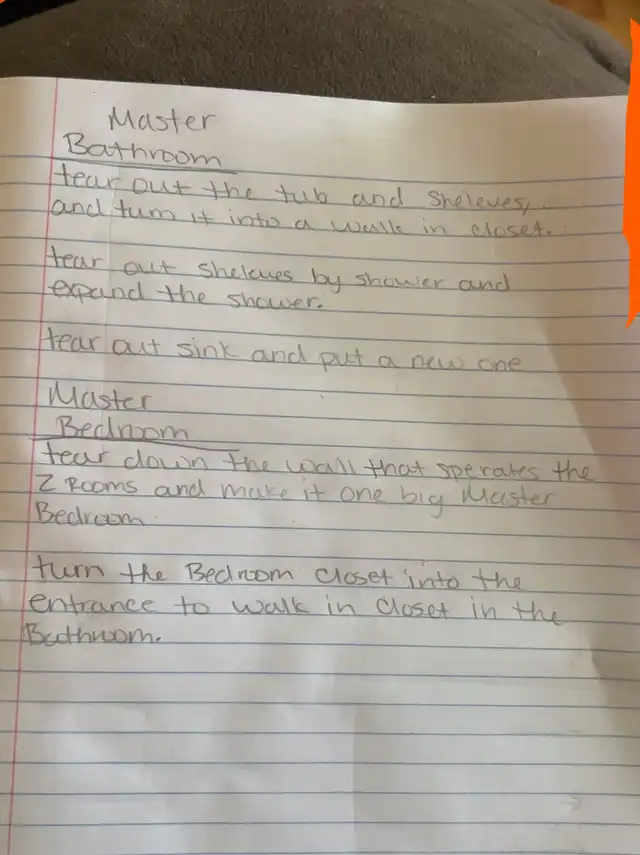 Master
Bathroom
tear out the tub and sheleves,
and turn it into a walk in closet.
tear out sheleves by shower and
expand the shower.
tear out sink and put a new one
Master
Bedroom
tear down the wall that sperates the
2 Rooms and make it one big Master
Bedroom
turn the Bedroom closet into the
entrance to walk in closet in the
Bathroom.